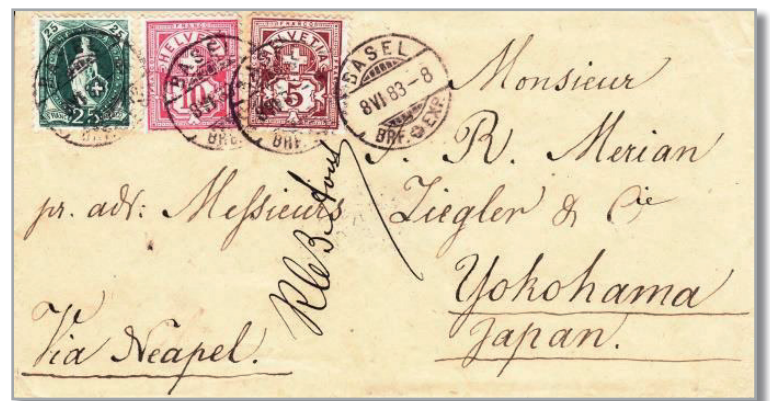 25 25
25
FRANCO
HELVETIA
10
FRANCO
HELVETIA
5
BASEL
BASEL
8 VI 83-8
BRF. EXP.
Monsieur
R. Merian
pr. adr: Messieurs Ziegler & Cie
Yokohama
Japan.
Via Neapel.